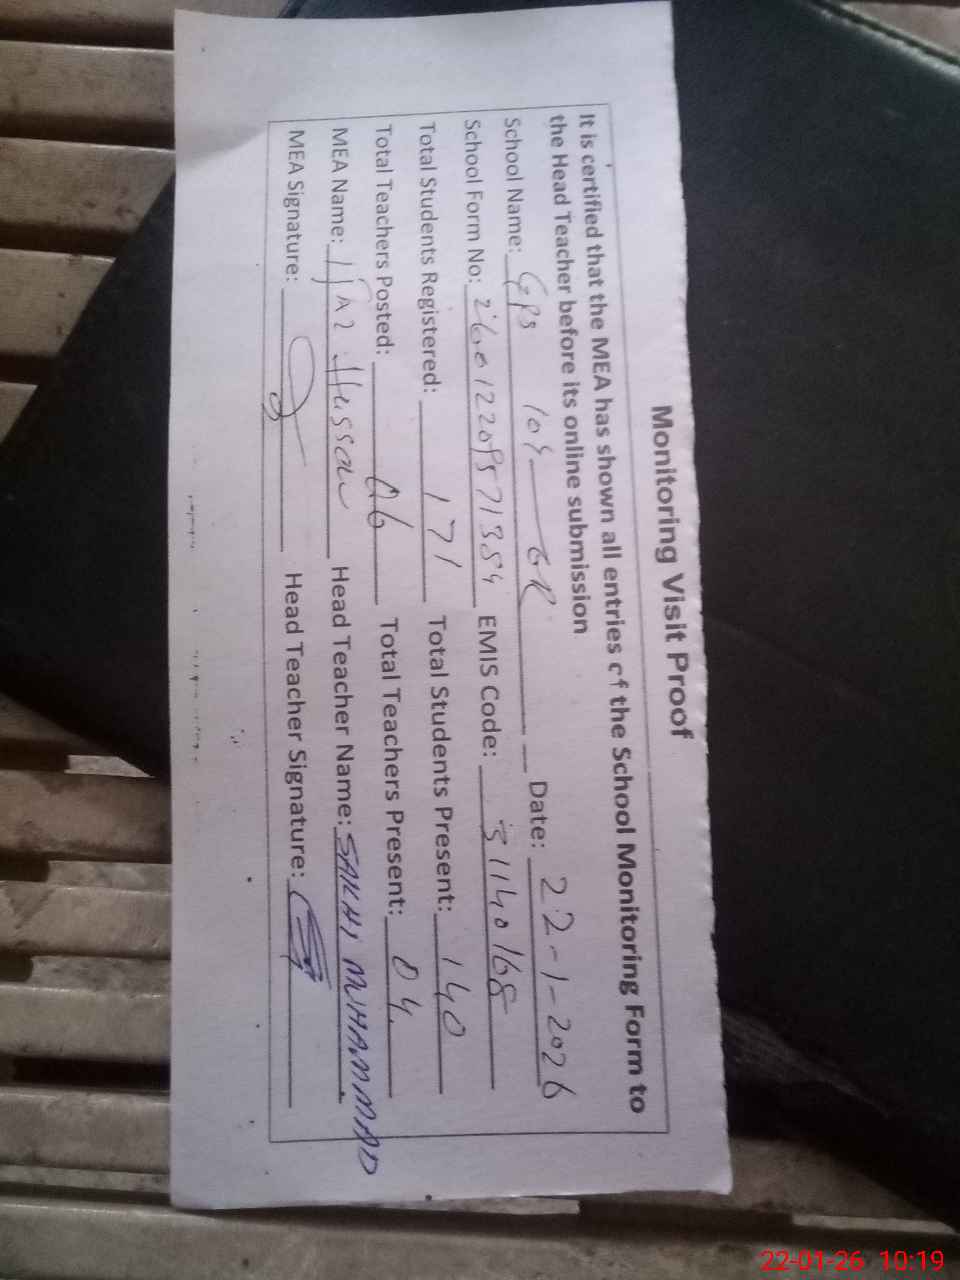 Monitoring Visit Proof
It is certified that the MEA has shown all entries of the School Monitoring Form to
the Head Teacher before its online submission
School Name: GPS 109 6R Date: 22-1-2026
School Form No: EMIS Code: 31140168
Total Students Registered: 171 Total Students Present: 140
Total Teachers Posted: 06 Total Teachers Present: 04
MEA Name: IJAZ Hussain Head Teacher Name: SAKHI MUHAMMAD
MEA Signature: Head Teacher Signature:
22-01-26 10:19